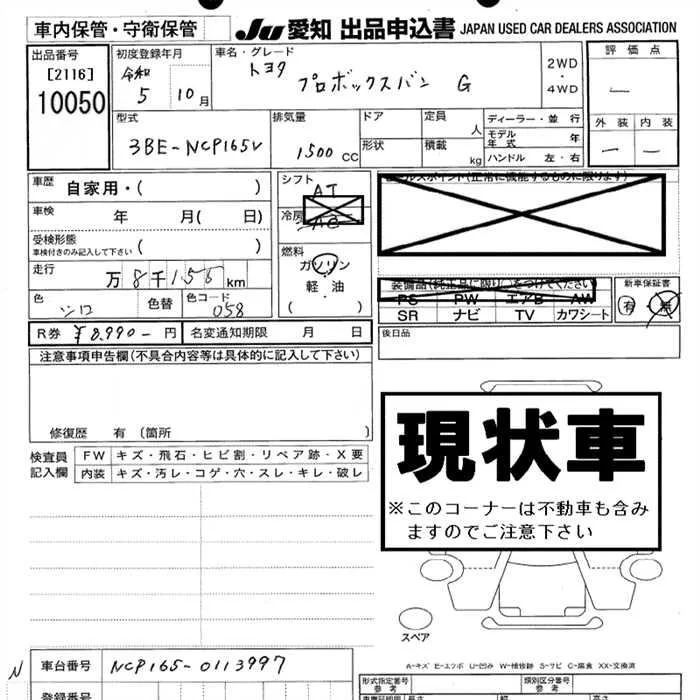 車内保管・守衛保管
JU 愛知 出品申込書 JAPAN USED CAR DEALERS ASSOCIATION
出品番号
[2116]
10050
初度登録年月
令和
5 10月
車名・グレード
トヨタ
プロボックスバン G
2WD
・
4WD
評価点
ー
型式
3BE-NCP165V
排気量
1500 CC
ドア
形状
定員
人
積載
kg
ディーラー・並行
モデル年式 年
ハンドル 左・右
外装 内装
ー ー
車歴 自家用・( )
車検 年 月( 日)
受検形態
車検付きのみ記入して下さい ( )
走行
万8千155km
色
シロ
色替
色コード
058
シフト
AT
冷房
AC
燃料
ガソリン
軽・油
( )
セールスポイント(正常に機能するものに限ります)
装備品(純正品に限り○をつけてください)
PS PW エアB AW
SR ナビ TV カワシート
新車保証書
有・無
R券 ¥8,990- 円
名変通知期限 月 日
後日品
注意事項申告欄(不具合内容等は具体的に記入して下さい)
修復歴 有 〔箇所 〕
検査員記入欄
FW キズ・飛石・ヒビ割・リペア跡・X要
内装 キズ・汚レ・コゲ・穴・スレ・キレ・破レ
現状車
※このコーナーは不動車も含み
ますのでご注意下さい
スペア
A-キズ E-エクボ U-凹み W-補修跡 S-サビ C-腐食 XX-交換済
N
車台番号 NCP165-0113997
登録番号
形式指定番号
参考
類別区分番号
参考
長さ
幅
高さ